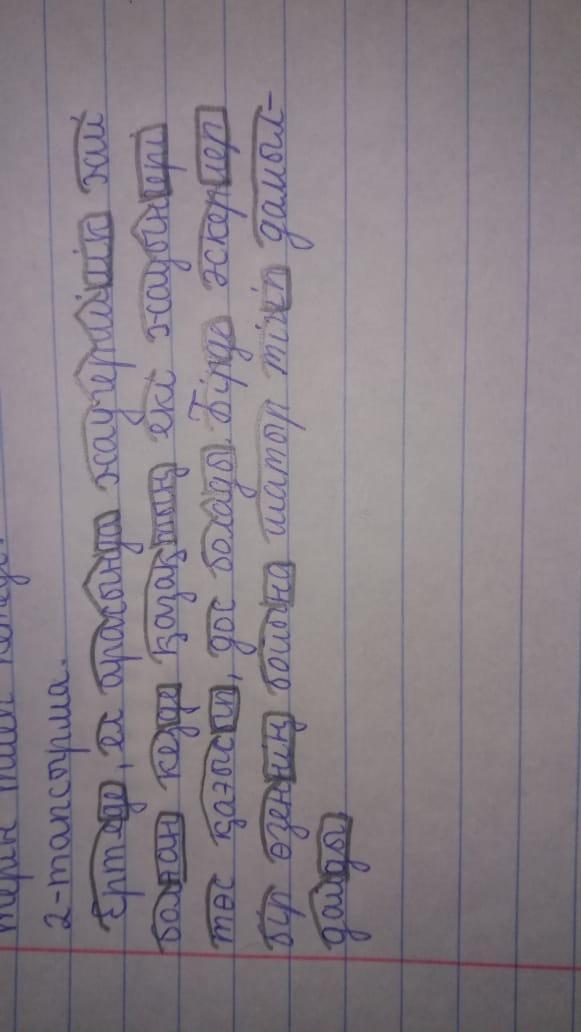 2-тапсырма.
Ертеде, ел арасында жаугершілік жай
болған кезде қазақтың екі жауынгері
төс қағысып, дос болады. Бірде әскерлер
бір өзеннің бойына шатыр тігіп дамыл-
дайды